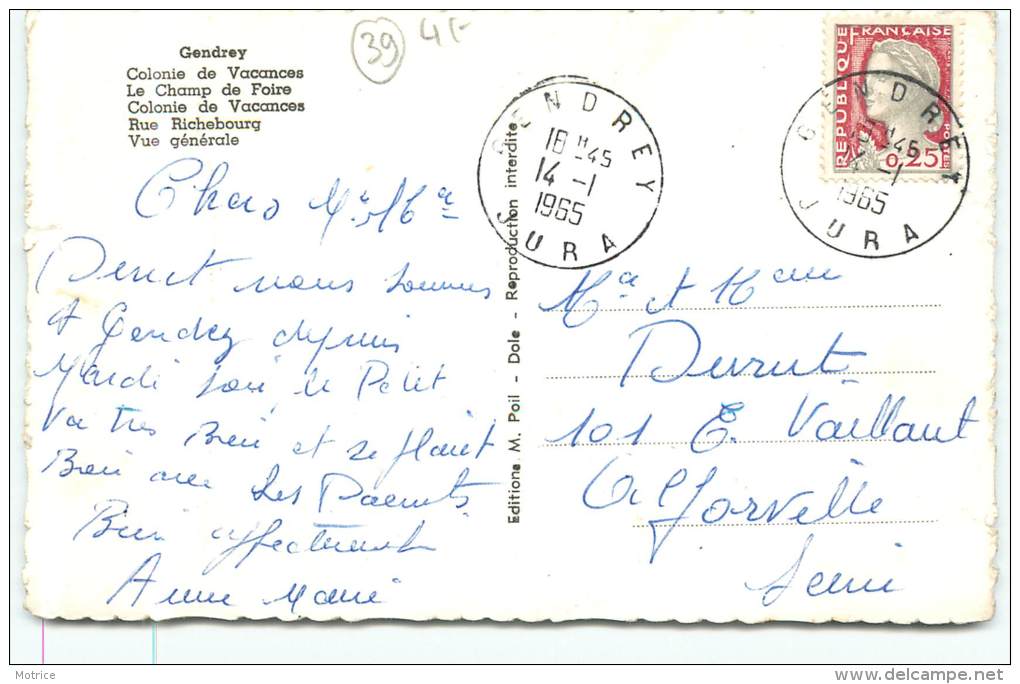 39 4F
Gendrey
Colonie de Vacances
Le Champ de Foire
Colonie de Vacances
Rue Richebourg
Vue générale
Chers Mr Mme
Durut nous sommes
A Gendrey depuis
Mardi soir, le Petit
Va tres Bien et se plait
Bien avec Les Parents
Bien affectueusement
Anne Marie
Editions M. Poil - Dole - Reproduction interdite
GENDREY
18H45
14 -1
1965
JURA
REPUBLIQUE FRANÇAISE
0,25F
POSTES
GENDREY
18H45
14 -1
1965
JURA
Mr et Mme
Durut
101 E. Vaillant
Alforville
Seine
Motrice
www.delcampe.net